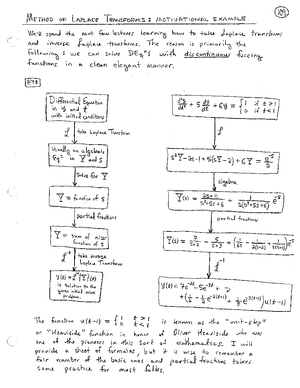 109
METHOD OF LAPLACE TRANSFORMS: MOTIVATIONAL EXAMPLE
We'll spend the next few lectures learning how to take Laplace transforms
and inverse Laplace transforms. The reason is primarily the
following: we can solve DEqⁿs with discontinuous forcing
functions in a clean elegant manner.
Differential Equation
in y and t
with initial conditions
L take Laplace Transform
Usually an algebraic
Eqⁿ in Y and s
Solve for Y
Y = function of s
partial fractions
Y = sum of nicer
function of s
L⁻¹ take inverse
Laplace Transform
y(t) = L⁻¹{Y}(t)
is solution to the
given initial value
problem.
d²y/dt² + 5 dy/dt + 6y = { 1 if t > 1
0 if t < 1
L
s²Y - 2s - 1 + 5(sY - 2) + 6Y = e⁻ˢ/s
algebra
partial fractions
L⁻¹
The function u(t-1) = { 1 t > 1
0 t < 1 is known as the "unit-step"
or "Heaviside" function in honor of Oliver Heaviside who was
one of the pioneers in this sort of mathematics. I will
provide a sheet of formulas, but it is wise to remember a
fair number of the basic ones and partial fractions takes
some practice for most folks.